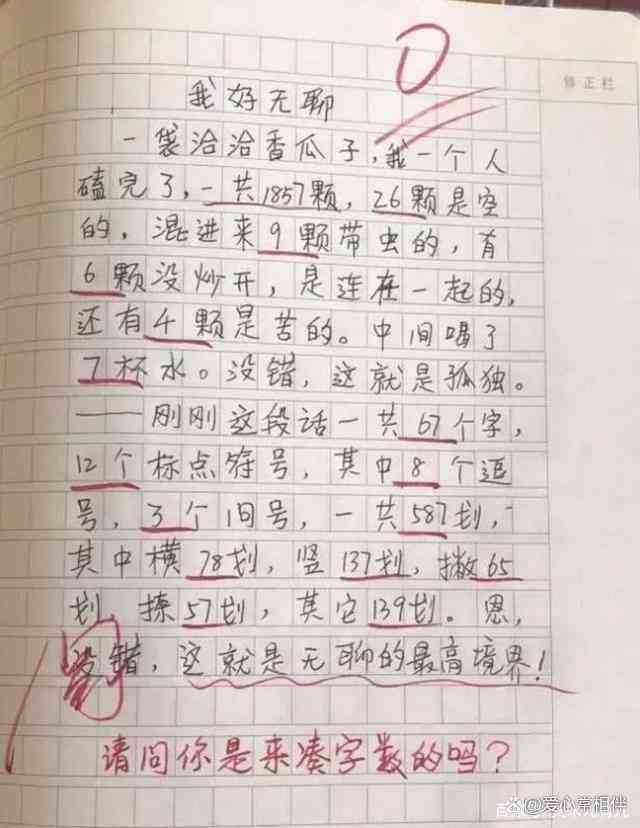 0
修正栏
我好无聊
一袋洽洽香瓜子,我一个人
磕完了,一共1857颗,26颗是空
的,混进来9颗带虫的,有
6颗没炒开,是连在一起的,
还有4颗是苦的。中间喝了
7杯水。没错,这就是孤独。
——刚刚这段话一共67个字,
12个标点符号,其中8个逗
号,3个旧号,一共587划,
其中横78划,竖137划,撇65
划,捺57划,其它139划。恩,
没错,这就是无聊的最高境界!
请问你是来凑字数的吗?
@爱心常相伴